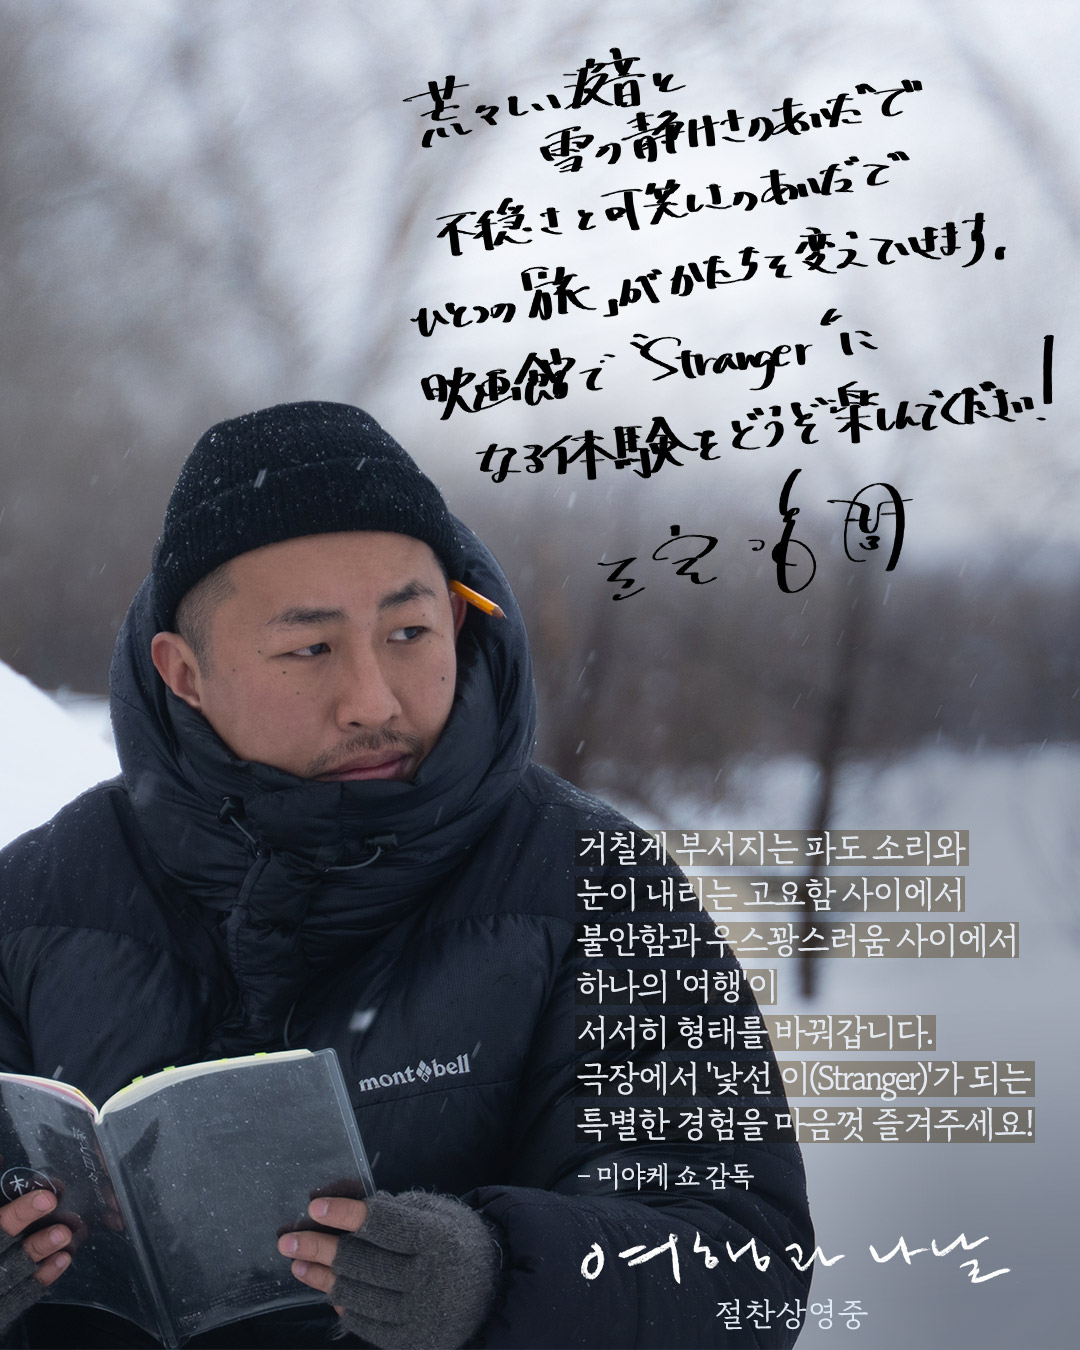 荒々しい波音と
雪の静けさのあいだで
不穏さと可笑しさのあいだで
ひとつの「旅」がかたちを変えていきます。
映画館で“Stranger”に
なる体験をどうぞ楽しんでください!
三宅唱
거칠게 부서지는 파도 소리와
눈이 내리는 고요함 사이에서
불안함과 우스꽝스러움 사이에서
하나의 '여행'이
서서히 형태를 바꿔갑니다.
극장에서 '낯선 이(Stranger)'가 되는
특별한 경험을 마음껏 즐겨주세요!
– 미야케 쇼 감독
여행과 나날
절찬상영중
mont bell